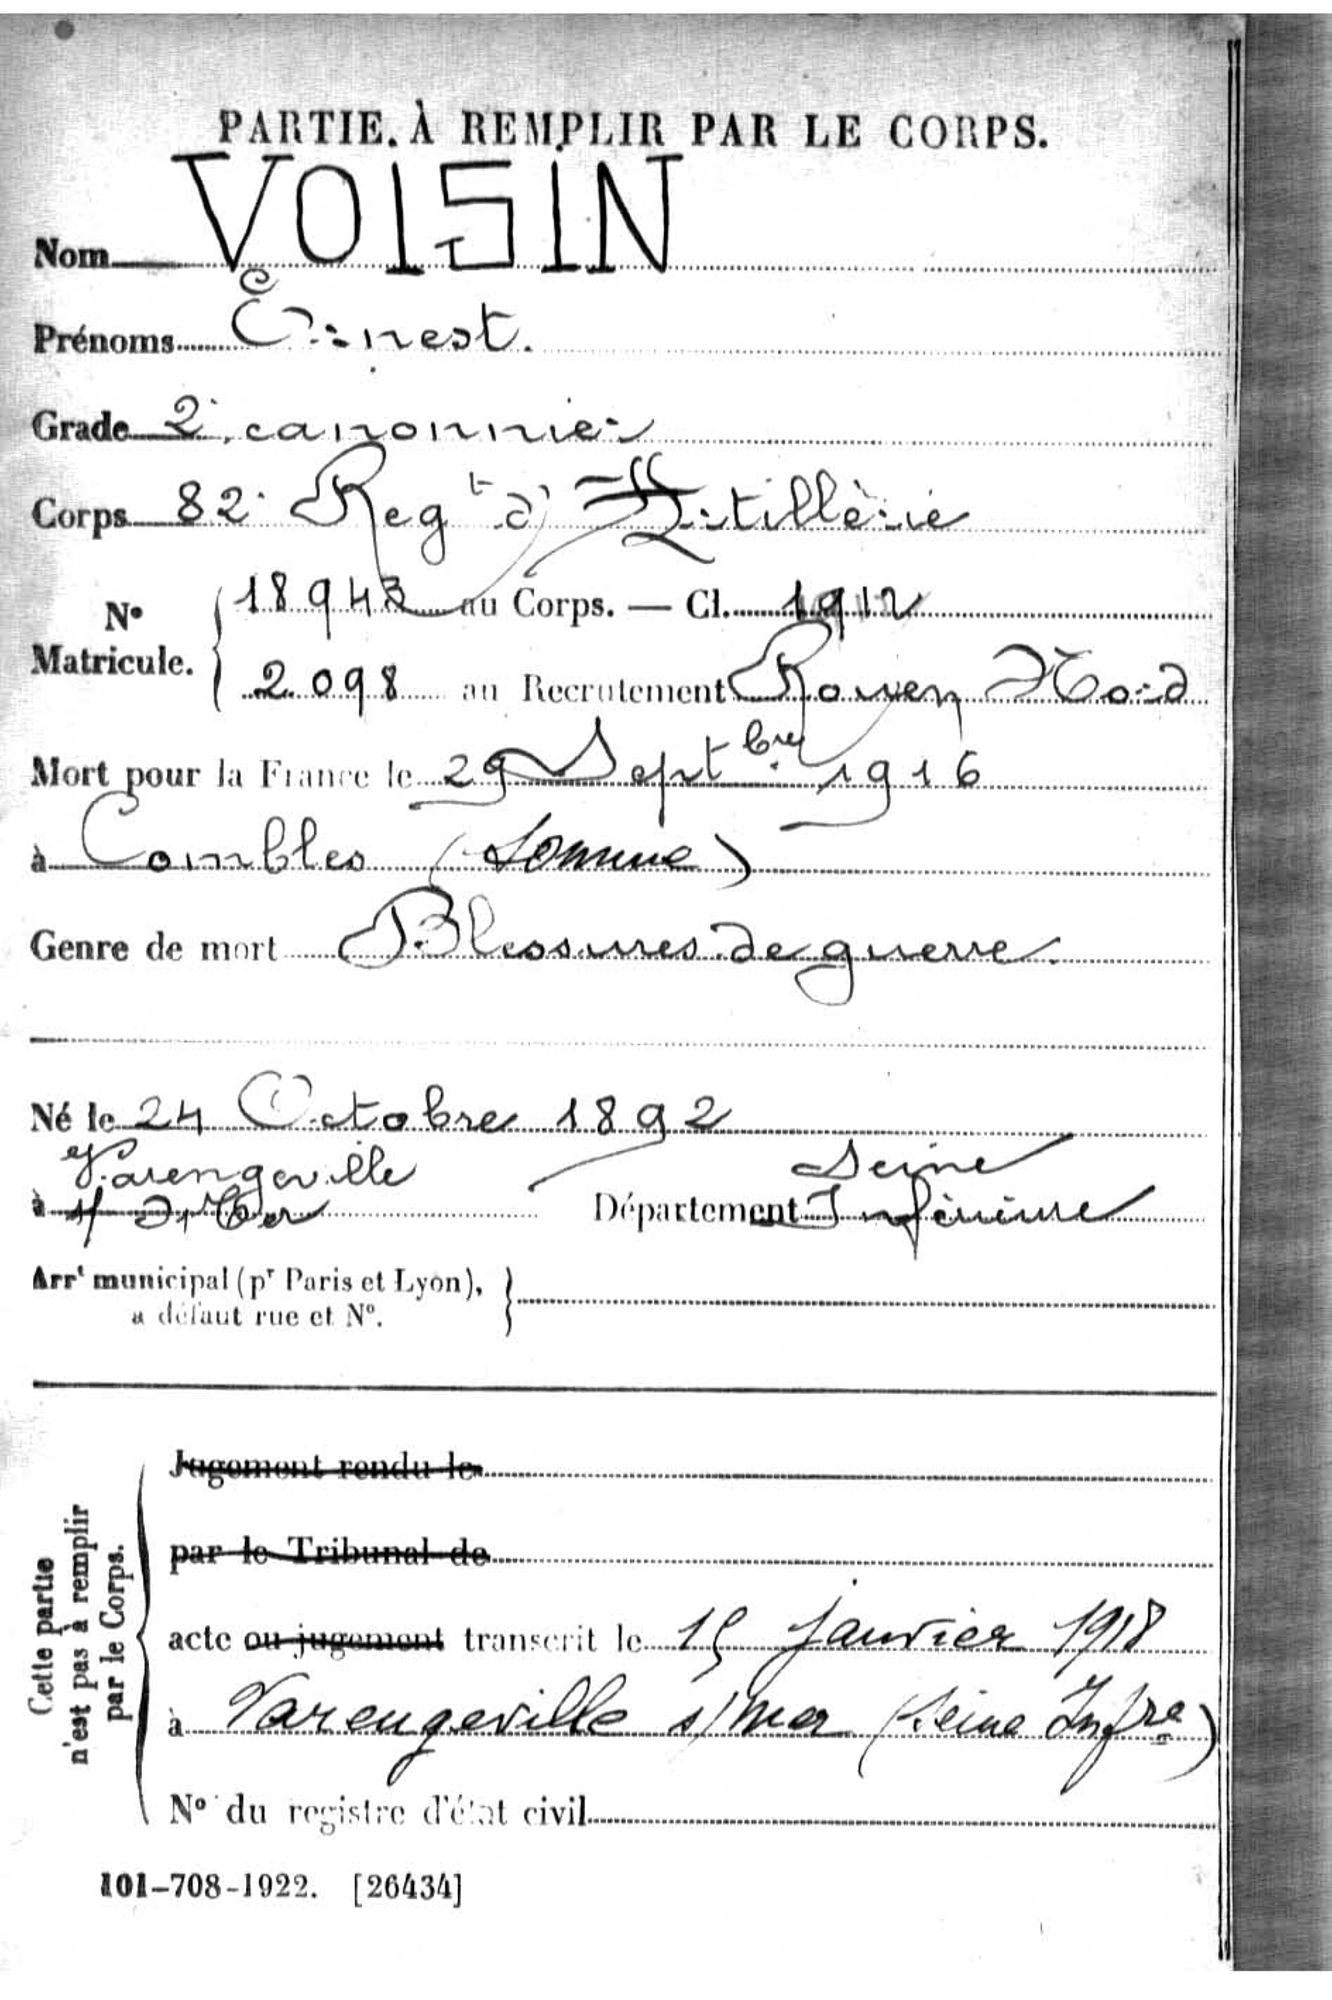 PARTIE. À REMPLIR PAR LE CORPS.
Nom VOISIN
Prénoms Ernest.
Grade 2e canonnier
Corps 82e Regt d'Artillerie
No Matricule. 18943 au Corps. — Cl. 1912
2098 au Recrutement Rouen Nord
Mort pour la France le 29 Septbre 1916
à Combles (Somme)
Genre de mort Blessures de guerre.
Né le 24 Octobre 1892
à Varengeville s/ Mer Département Seine Inférieure
Arrt municipal (pr Paris et Lyon),
a défaut rue et No.
Cette partie
n'est pas à remplir
par le Corps.
Jugement rendu le
par le Tribunal de
acte ou jugement transcrit le 15 janvier 1918
à Varengeville s/mer (Seine Infre)
No du registre d'état civil
101-708-1922. [26434]